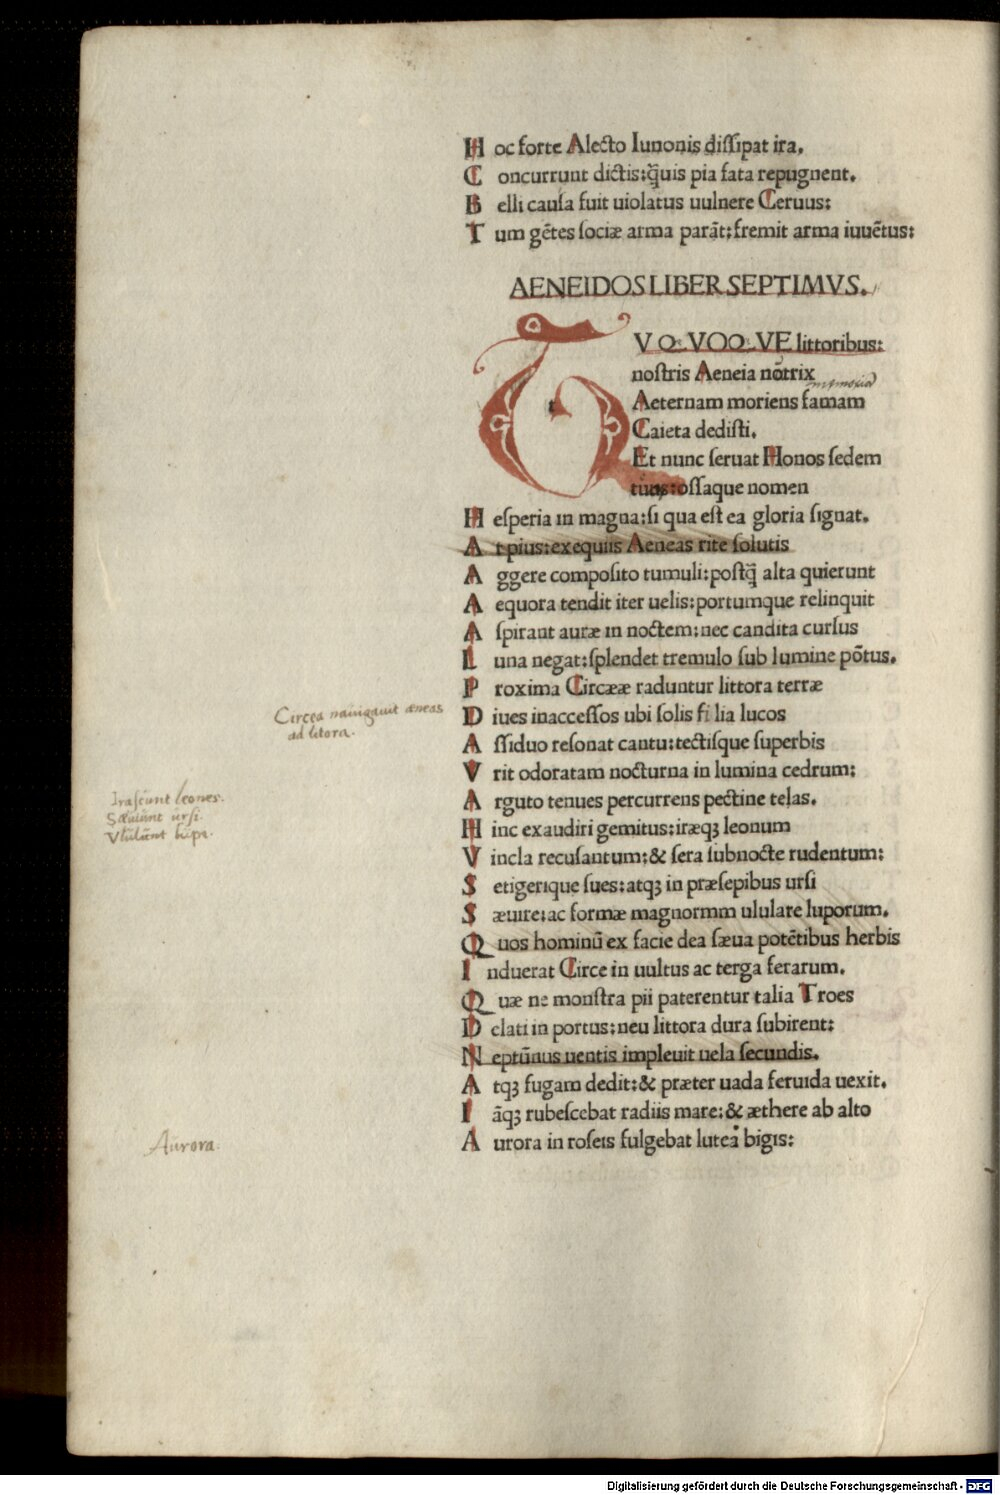 H oc forte Alecto Iunonis diſſipat ira.
C oncurrunt dictis: q̃uis pia fata repugnent.
B elli cauſa fuit uiolatus uulnere Ceruus:
T um gẽtes ſociæ arma parãt: fremit arma iuuẽtus:
AENEIDOS LIBER SEPTIMVS.
t V QVOQVE littoribus:
noſtris Aeneia nõtrix
memoriã
Aeternam moriens famam
Caieta dediſti.
Et nunc ſeruat Honos ſedem
tuus: oſſaque nomen
H eſperia in magna: ſi qua eſt ea gloria ſignat.
A t pius: exequiis Aeneas rite ſolutis
A ggere compoſito tumuli: poſtq̃ alta quierunt
A equora tendit iter uelis: portumque relinquit
A ſpirant auræ in noctem: nec candita curſus
L una negat: ſplendet tremulo ſub lumine põtus.
P roxima Circææ raduntur littora terræ
D iues inacceſſos ubi ſolis filia lucos
Circea nauigauit æneas
ad litora.
A ſſiduo reſonat cantu: tectiſque ſuperbis
V rit odoratam nocturna in lumina cedrum:
A rguto tenues percurrens pectine telas.
Iraſcunt leones.
Sæuiunt urſi.
Vlulunt lupi.
H inc exaudiri gemitus: iræqꝫ leonum
V incla recuſantum: & ſera ſubnocte rudentum:
S etigerique ſues: atqꝫ in præſepibus urſi
S æuire: ac formæ magnormm ululare luporum.
Q uos hominũ ex facie dea ſæua potẽtibus herbis
I nduerat Circe in uultus ac terga ferarum.
Q uæ ne monſtra pii paterentur talia Troes
D elati in portus: neu littora dura ſubirent:
N eptũnus uentis impleuit uela ſecundis.
A tqꝫ fugam dedit: & præter uada feruida uexit.
I ãqꝫ rubeſcebat radiis mare: & æthere ab alto
Aurora.
A urora in roſeis fulgebat lutea bigis:
Digitalisierung gefördert durch die Deutsche Forschungsgemeinschaft - DFG